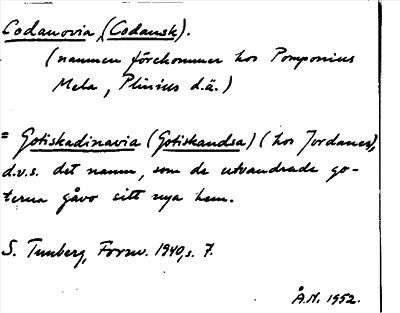 Codanovia (Codansk).
(namnen förekommer hos Pomponius
Mela, Plinius d.ä.)
= Gotiskadinavia (Gotiskandsa) (hos Jordanes),
d.v.s. det namn, som de utvandrade go-
terna gåvo sitt nya hem.
S. Tunberg, Fornv. 1940, s. 7.
Å.N. 1952.